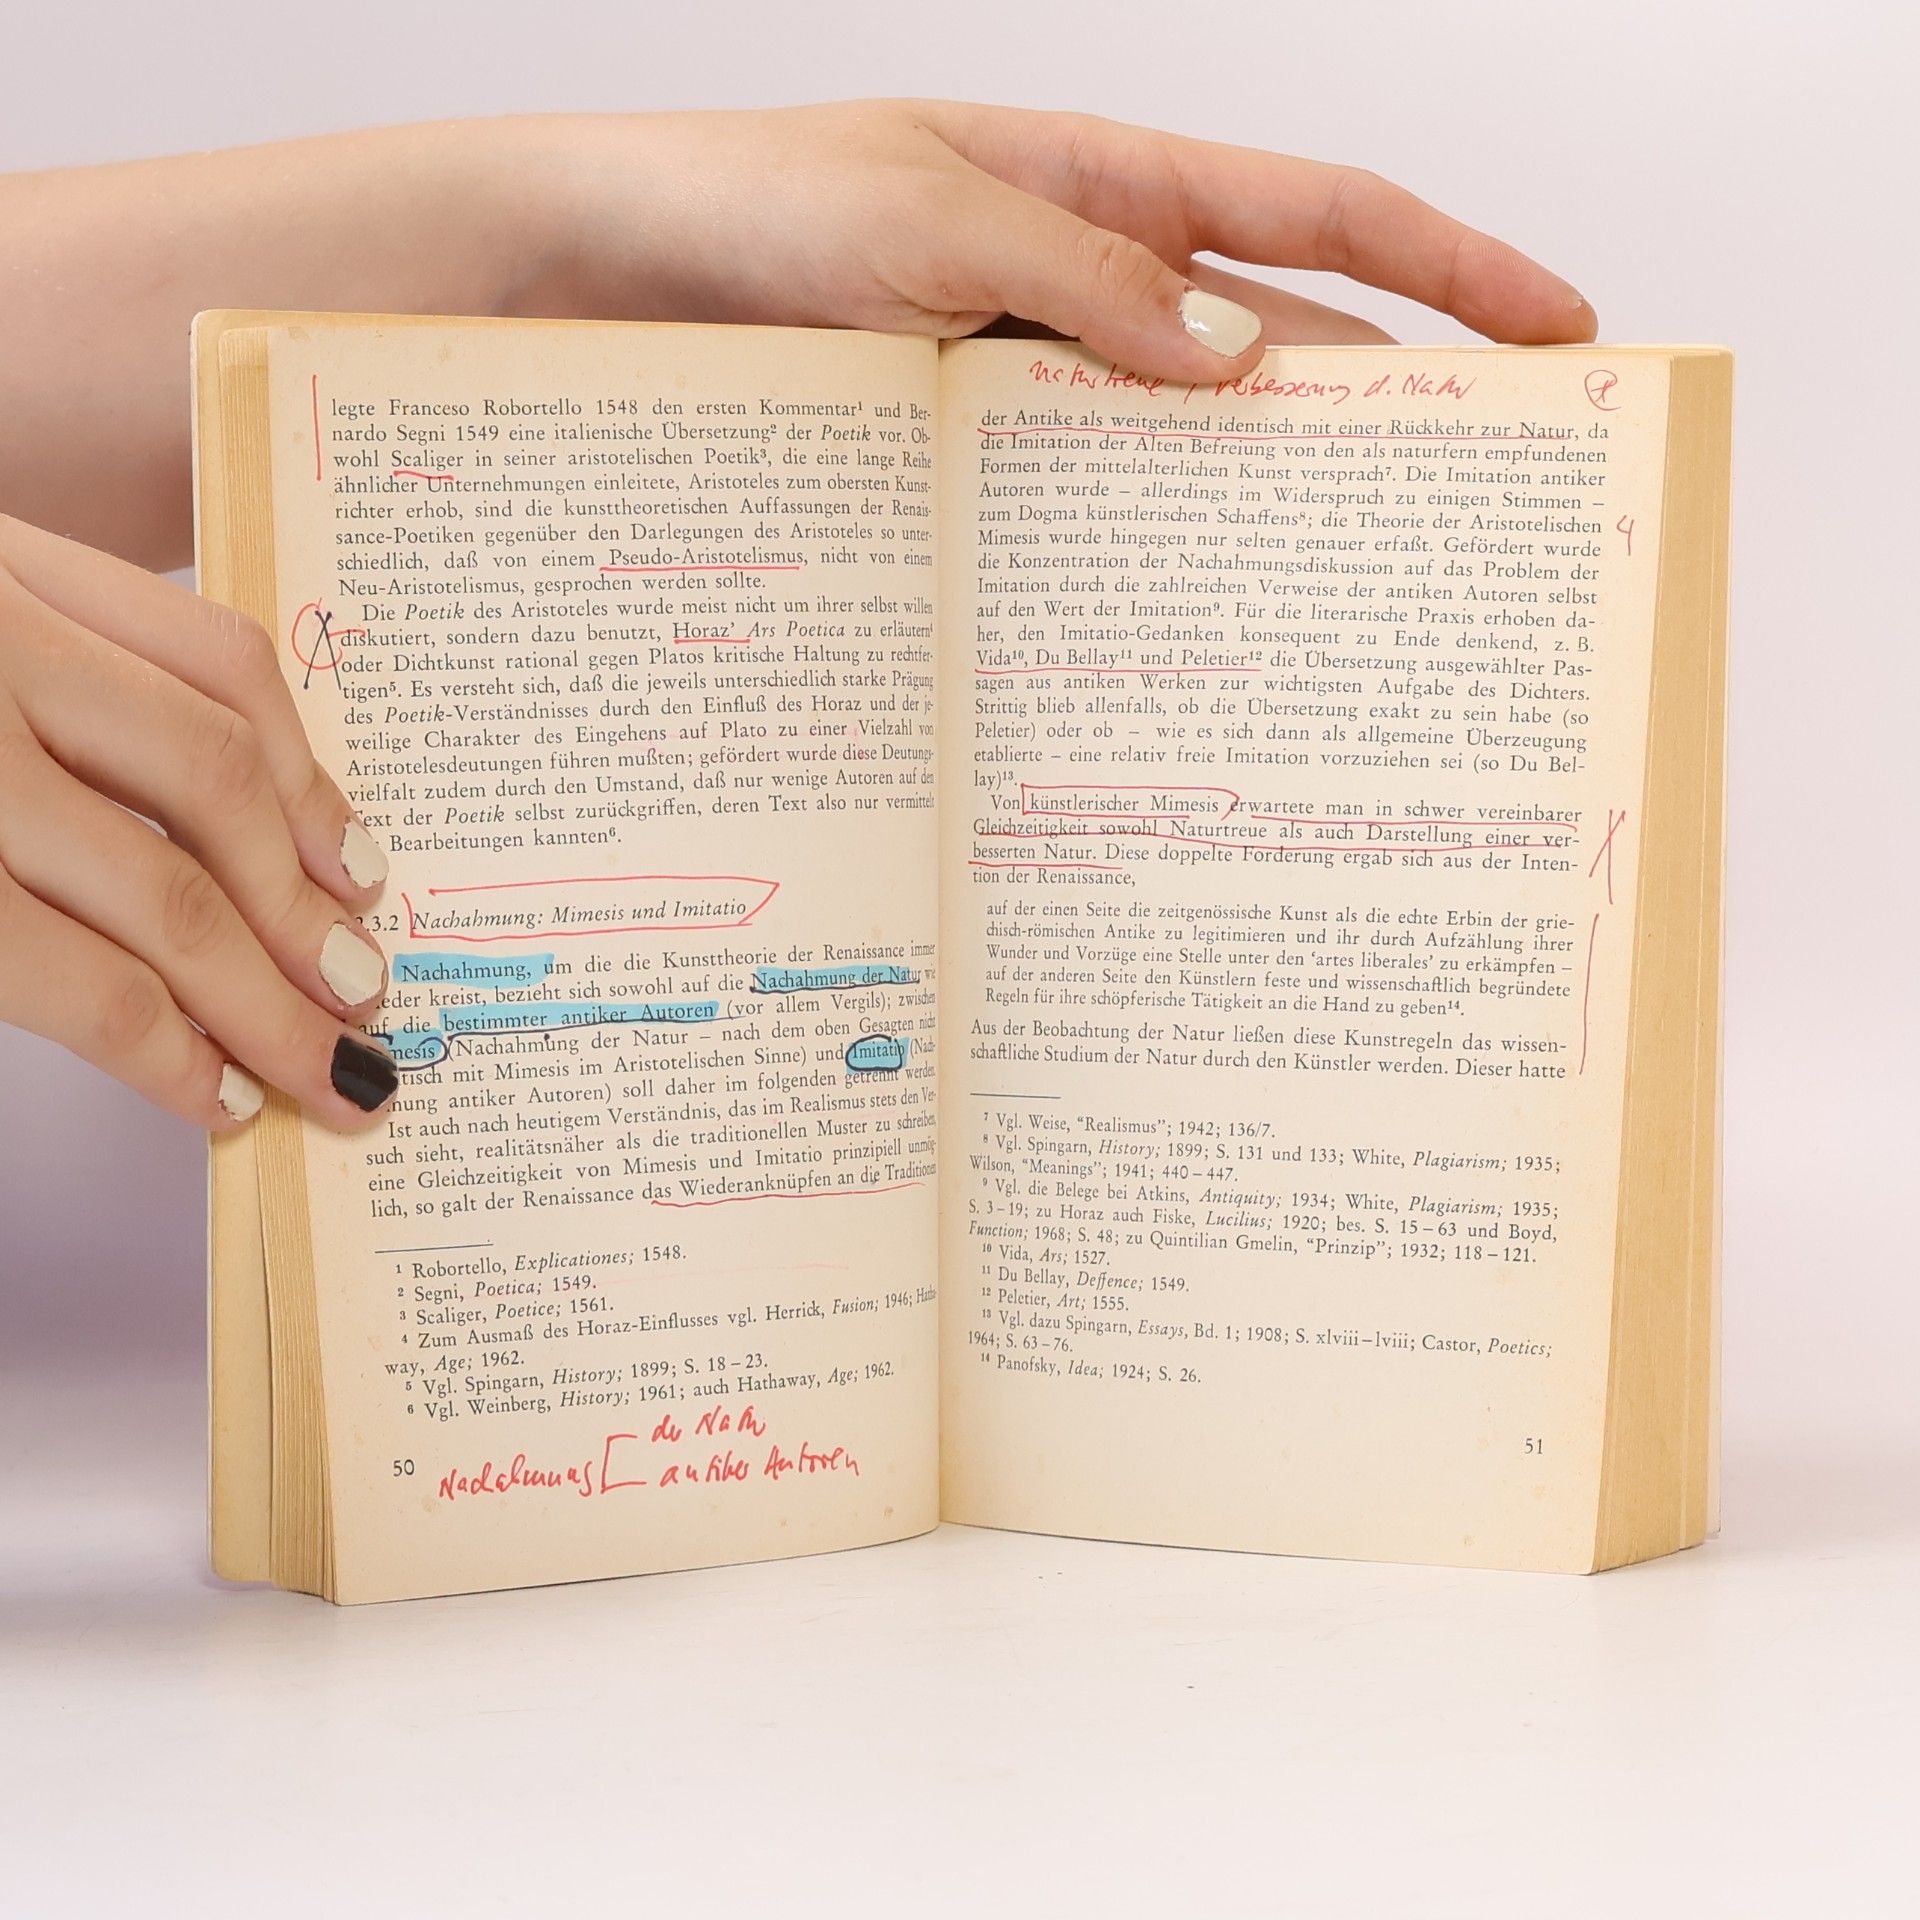 legte Franceso Robortello 1548 den ersten Kommentar¹ und Ber-
nardo Segni 1549 eine italienische Übersetzung² der Poetik vor. Ob-
wohl Scaliger in seiner aristotelischen Poetik³, die eine lange Reihe
ähnlicher Unternehmungen einleitete, Aristoteles zum obersten Kunst-
richter erhob, sind die kunsttheoretischen Auffassungen der Renais-
sance-Poetiken gegenüber den Darlegungen des Aristoteles so unter-
schiedlich, daß von einem Pseudo-Aristotelismus, nicht von einem
Neu-Aristotelismus, gesprochen werden sollte.
Die Poetik des Aristoteles wurde meist nicht um ihrer selbst willen
diskutiert, sondern dazu benutzt, Horaz’ Ars Poetica zu erläutern⁴
oder Dichtkunst rational gegen Platos kritische Haltung zu rechtfer-
tigen⁵. Es versteht sich, daß die jeweils unterschiedlich starke Prägung
des Poetik-Verständnisses durch den Einfluß des Horaz und der je-
weilige Charakter des Eingehens auf Plato zu einer Vielzahl von
Aristotelesdeutungen führen mußten; gefördert wurde diese Deutungs-
vielfalt zudem durch den Umstand, daß nur wenige Autoren auf den
Text der Poetik selbst zurückgriffen, deren Text also nur vermittelt
Bearbeitungen kannten⁶.
.3.2 Nachahmung: Mimesis und Imitatio
Nachahmung, um die die Kunsttheorie der Renaissance immer
ieder kreist, bezieht sich sowohl auf die Nachahmung der Natur wie
auf die bestimmter antiker Autoren (vor allem Vergils); zwischen
mesis (Nachahmung der Natur – nach dem oben Gesagten nicht
tisch mit Mimesis im Aristotelischen Sinne) und Imitatio (Nach-
mung antiker Autoren) soll daher im folgenden getrennt werden.
Ist auch nach heutigem Verständnis, das im Realismus stets den Ver-
such sieht, realitätsnäher als die traditionellen Muster zu schreiben,
eine Gleichzeitigkeit von Mimesis und Imitatio prinzipiell unmög-
lich, so galt der Renaissance das Wiederanknüpfen an die Traditionen
¹ Robortello, Explicationes; 1548.
² Segni, Poetica; 1549.
³ Scaliger, Poetice; 1561.
⁴ Zum Ausmaß des Horaz-Einflusses vgl. Herrick, Fusion; 1946; Hatha-
way, Age; 1962.
⁵ Vgl. Spingarn, History; 1899; S. 18–23.
⁶ Vgl. Weinberg, History; 1961; auch Hathaway, Age; 1962.
der Natur
Nachahmung
antiker Autoren
50
naturtreue / Verbesserung d. Natur
der Antike als weitgehend identisch mit einer Rückkehr zur Natur, da
die Imitation der Alten Befreiung von den als naturfern empfundenen
Formen der mittelalterlichen Kunst versprach⁷. Die Imitation antiker
Autoren wurde – allerdings im Widerspruch zu einigen Stimmen –
zum Dogma künstlerischen Schaffens⁸; die Theorie der Aristotelischen
Mimesis wurde hingegen nur selten genauer erfaßt. Gefördert wurde
die Konzentration der Nachahmungsdiskussion auf das Problem der
Imitation durch die zahlreichen Verweise der antiken Autoren selbst
auf den Wert der Imitation⁹. Für die literarische Praxis erhoben da-
her, den Imitatio-Gedanken konsequent zu Ende denkend, z. B.
Vida¹⁰, Du Bellay¹¹ und Peletier¹² die Übersetzung ausgewählter Pas-
sagen aus antiken Werken zur wichtigsten Aufgabe des Dichters.
Strittig blieb allenfalls, ob die Übersetzung exakt zu sein habe (so
Peletier) oder ob – wie es sich dann als allgemeine Überzeugung
etablierte – eine relativ freie Imitation vorzuziehen sei (so Du Bel-
lay)¹³.
Von künstlerischer Mimesis erwartete man in schwer vereinbarer
Gleichzeitigkeit sowohl Naturtreue als auch Darstellung einer ver-
besserten Natur. Diese doppelte Forderung ergab sich aus der Inten-
tion der Renaissance,
auf der einen Seite die zeitgenössische Kunst als die echte Erbin der grie-
chisch-römischen Antike zu legitimieren und ihr durch Aufzählung ihrer
Wunder und Vorzüge eine Stelle unter den ‘artes liberales’ zu erkämpfen –
auf der anderen Seite den Künstlern feste und wissenschaftlich begründete
Regeln für ihre schöpferische Tätigkeit an die Hand zu geben¹⁴.
Aus der Beobachtung der Natur ließen diese Kunstregeln das wissen-
schaftliche Studium der Natur durch den Künstler werden. Dieser hatte
⁷ Vgl. Weise, “Realismus”; 1942; 136/7.
⁸ Vgl. Spingarn, History; 1899; S. 131 und 133; White, Plagiarism; 1935;
Wilson, “Meanings”; 1941; 440–447.
⁹ Vgl. die Belege bei Atkins, Antiquity; 1934; White, Plagiarism; 1935;
S. 3–19; zu Horaz auch Fiske, Lucilius; 1920; bes. S. 15–63 und Boyd,
Function; 1968; S. 48; zu Quintilian Gmelin, “Prinzip”; 1932; 118–121.
¹⁰ Vida, Ars; 1527.
¹¹ Du Bellay, Deffence; 1549.
¹² Peletier, Art; 1555.
¹³ Vgl. dazu Spingarn, Essays, Bd. 1; 1908; S. xlviii–lviii; Castor, Poetics;
1964; S. 63–76.
¹⁴ Panofsky, Idea; 1924; S. 26.
51